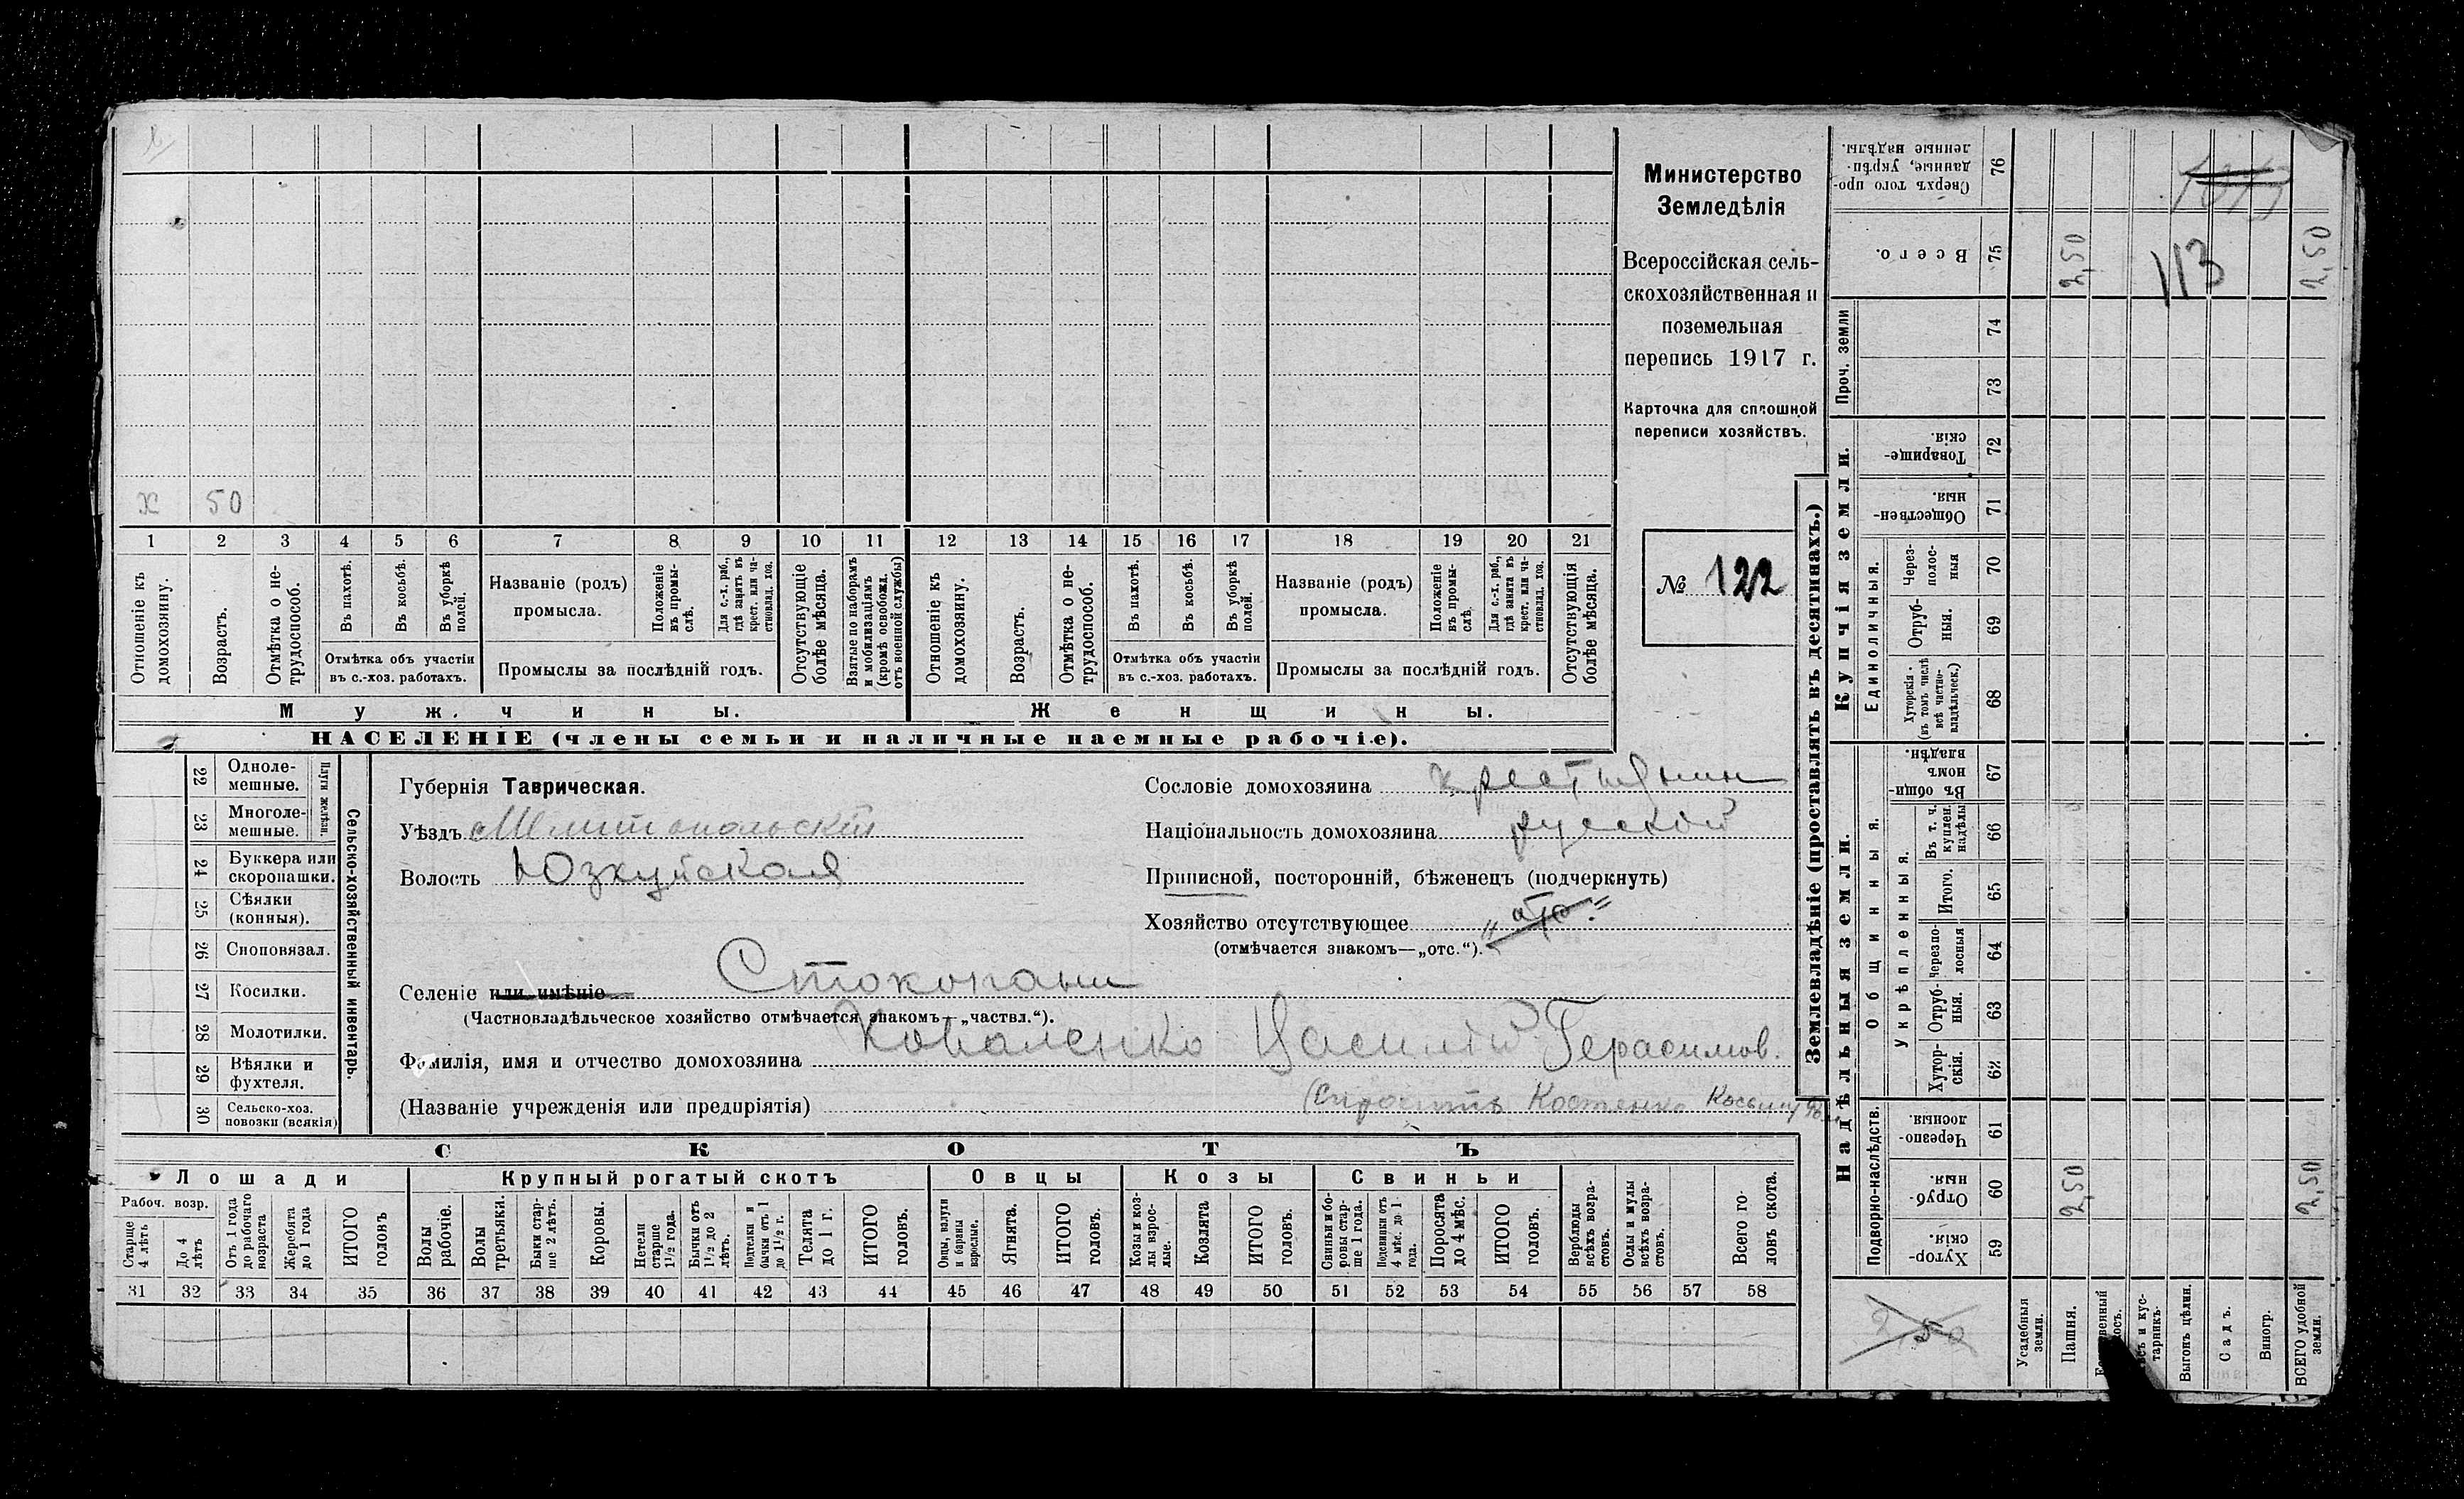 Министерство
Земледѣлія
Всероссійская сель-
скохозяйственная и
поземельная
перепись 1917 г.
Карточка для сплошной
переписи хозяйствъ.
№ 122
х 50
1 2 3 4 5 6 7 8 9 10 11 12 13 14 15 16 17 18 19 20 21
Отношеніе къ домохозяину.
Возрастъ.
Отмѣтка о не-трудоспособ.
Въ пахотѣ.
Въ косьбѣ.
Въ уборкѣ полей.
Отмѣтка объ участіи
въ с.-хоз. работахъ.
Названіе (родъ)
промысла.
Положеніе въ промы-слѣ.
Для с.-х. раб., гдѣ занятъ въ крест. или ча-стновлад. хоз.
Промыслы за послѣдній годъ.
Отсутствующіе болѣе мѣсяца.
Взятые по наборамъ и мобилизаціямъ (кромѣ освобожд. отъ военной службы)
Отношеніе къ домохозяину.
Возрастъ.
Отмѣтка о не-трудоспособ.
Въ пахотѣ.
Въ косьбѣ.
Въ уборкѣ полей.
Отмѣтка объ участіи
въ с.-хоз. работахъ.
Названіе (родъ)
промысла.
Положеніе въ промы-слѣ.
Для с.-х. раб., гдѣ занята въ крест. или ча-стновлад. хоз.
Промыслы за послѣдній годъ.
Отсутствующія болѣе мѣсяца.
Мужчины. Женщины.
НАСЕЛЕНІЕ (члены семьи и наличные наемные рабочіе).
Сельско-хозяйственный инвентарь.
Плуги желѣзн.
22 Одноле-мешные.
23 Многоле-мешные.
24 Буккера или скоропашки.
25 Сѣялки (конныя).
26 Сноповязал.
27 Косилки.
28 Молотилки.
29 Вѣялки и фухтеля.
30 Сельско-хоз. повозки (всякія)
Губернія Таврическая.
Уѣздъ Мелитопольскій
Волость Юзкуйская
Сословіе домохозяина крестьянин
Національность домохозяина русской
Приписной, посторонній, бѣженецъ (подчеркнуть)
Хозяйство отсутствующее
(отмѣчается знакомъ—„отс.“).
Селеніе или имѣніе Стокопани
(Частновладѣльческое хозяйство отмѣчается знакомъ—„частвл.“).
Фамилія, имя и отчество домохозяина Коваленко Василій Герасимов.
(Названіе учрежденія или предпріятія) Костенко
СКОТЪ
Лошади Крупный рогатый скотъ Овцы Козы Свиньи
Рабоч. возр.
Старше 4 лѣтъ
До 4 лѣтъ
Отъ 1 года до рабочаго возраста
Жеребята до 1 года
ИТОГО головъ
Волы рабочіе.
Волы третьяки.
Быки стар-ше 2 лѣтъ.
Коровы.
Нетели старше 1½ года.
Бычки отъ 1½ до 2 лѣтъ.
Подтелки и бычки отъ 1 до 1½ г.
Телята до 1 г.
ИТОГО головъ.
Овцы, валухи и бараны взрослые.
Ягнята.
ИТОГО головъ.
Козы и коз-лы взрос-лые.
Козлята
ИТОГО головъ.
Свиньи и бо-ровы стар-ше 1 года.
Подсвинки отъ 4 мѣс. до 1 года.
Поросята до 4 мѣс.
ИТОГО головъ.
Верблюды всѣхъ возра-стовъ.
Ослы и мулы всѣхъ возра-стовъ.
Всего го-ловъ скота.
31 32 33 34 35 36 37 38 39 40 41 42 43 44 45 46 47 48 49 50 51 52 53 54 55 56 57 58
Землевладѣніе (проставлять въ десятинахъ.)
Купчія земли.
Надѣльныя земли.
Сверхъ того про-данные, укрѣп-ленные надѣлы. 76
Всего. 75 2,50 113 2,50
Проч. земли 74
73
Товарище-скія. 72
Обществен-ныя. 71
Единоличныя.
Через-полос-ныя 70
Отруб-ныя. 69
Хуторскія (въ томъ числѣ всѣ частно-владѣльческ.) 68
Общинныя.
Въ общин-номъ владѣн. 67
Укрѣпленныя.
Въ т. ч. куплен. надѣлы 66
Итого. 65
Черезпо-лосныя 64
Отруб-ныя. 63
Хутор-скія. 62
Подворно-наслѣдств.
Черезпо-лосныя. 61
Отруб-ныя. 60 2,50 2,50
Хутор-скія. 59
2,50
Усадебныя земли.
Пашня.
тарникъ.
Выгонъ цѣлин.
Садъ.
Виногр.
ВСЕГО удобной земли.